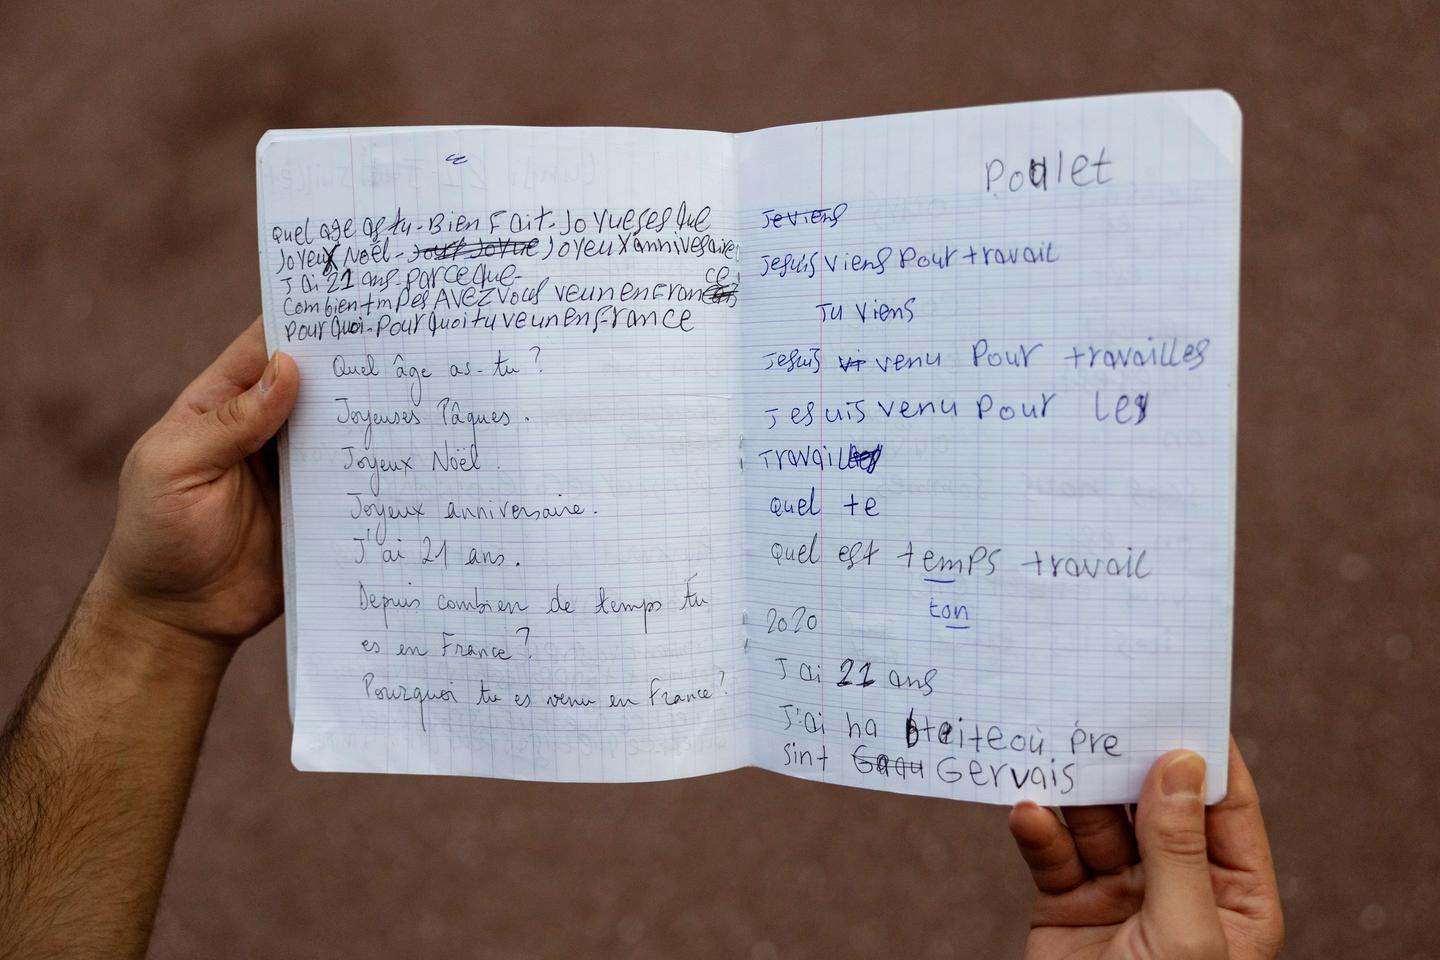 quel age as tu - Bien Fait - Joyueses Que
Joyeux Noël - Joyeux anniversaire
J ai 21 ans - parce que -
ce
Combien tmpes AVEZ vous veun en Fran
pour quoi - pour quoi tu veun en france
Quel âge as-tu ?
Joyeuses Pâques.
Joyeux Noël.
Joyeux anniversaire.
J'ai 21 ans.
Depuis combien de temps tu
es en France ?
Pourquoi tu es venu en France ?
Poulet
Jeviens
Jesuis viens pour travail
Tu viens
Jesuis vi venu pour travailles
Jesuis venu pour les
Travail
quel te
quel est temps travail
ton
2020
J ai 21 ans
J'ai ha où pre
sint Gervais